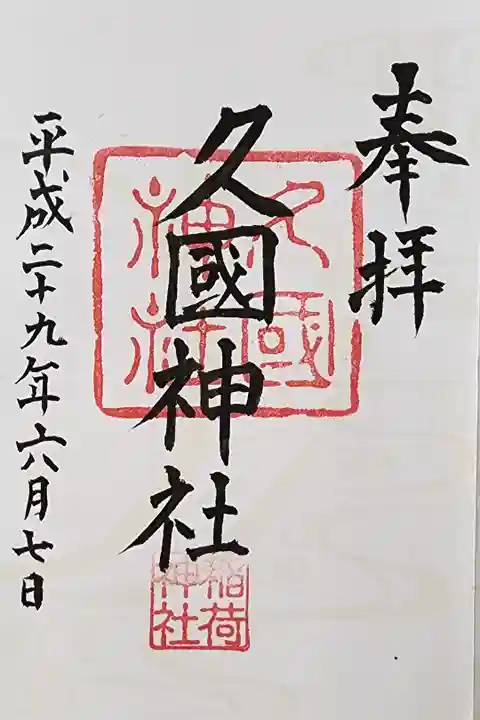 奉拝
久國神社
久國
神社
稲荷
神社
平成二十九年六月七日